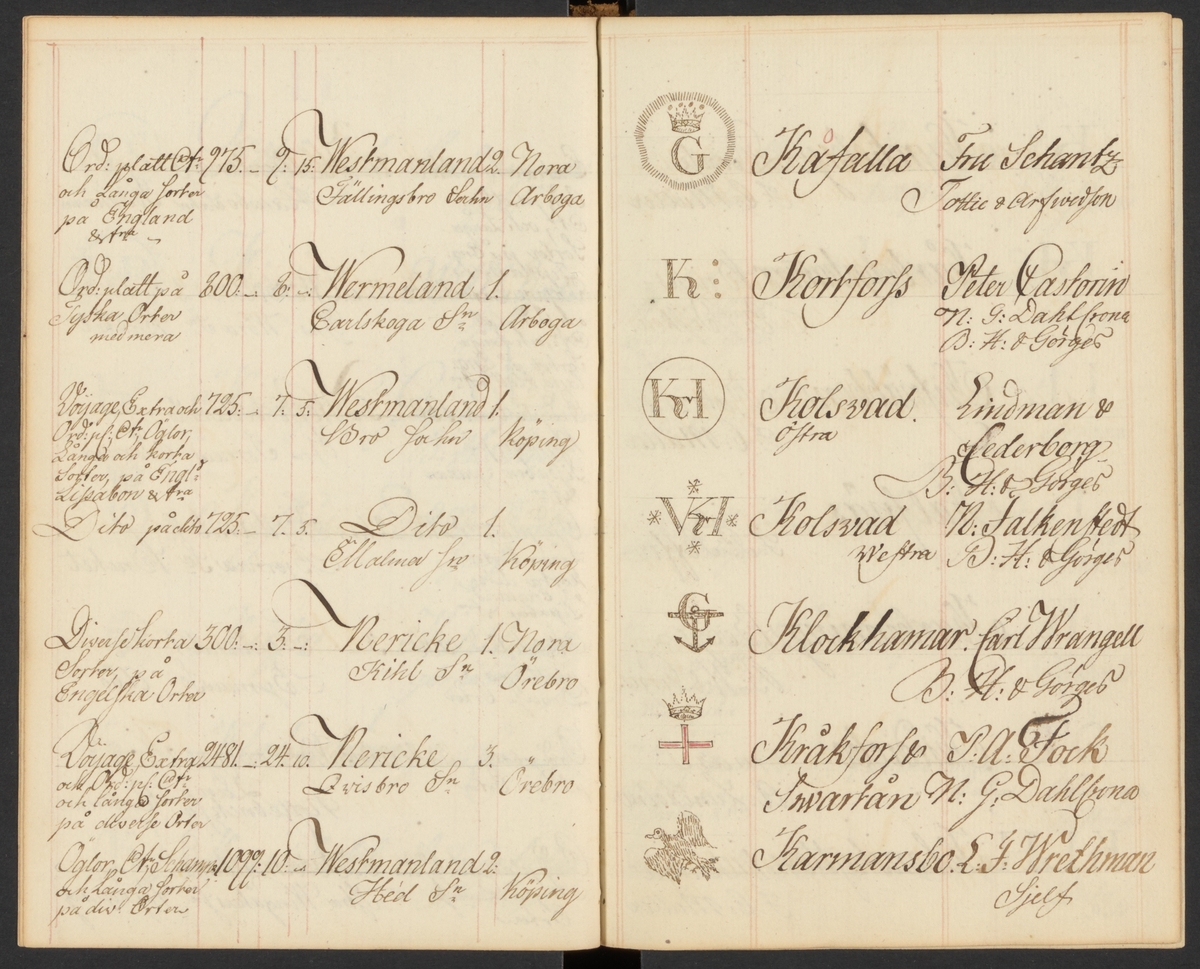 Ord: platt Ctr 975. – 9. 15. Westmanland 2. Nora
och Långa sorter Fällingsbro Sochn Arboga
på England
& fra
Ord: platt på 800. –. 8. –. Wermeland 1.
Tyska Orter Carlskoga Sn Arboga
med mera
Voyage, Extra och 725. –. 7. 5. Westmanland 1.
Ord: pl: Ctr, Öglor, Bro Sochn Köping
Långa och korta
Sorter, på Engl:
Lissabon & fra
Dito på dito 725. – 7. 5. Dito 1.
Malma Sn Köping
Diverse korta 300. –. 3. –. Nericke 1. Nora
Sorter, på Kihl Sn Örebro
Engelska Orter
Voyage, Extra 2481. –. 24. 10. Nericke 3.
och Ord: pl: Ctr Qvisbro Sn Örebro
och långa Sorter
på diverse Orter
Öglor, Ctr, 1099. 10. –. Westmanland 2.
och Långa Sorter Hed Sn Köping
på div. Orter
G Kåfalla Fru Schantz
Tottie & Arfwedson
K: Kortforss Peter Castorin
N: G: Dahlstrona
B: H: & Görges
KH Kolsvad. Lindman &
Östra Cederborg
B: H: & Görges
VKH Kolsvad N: Falkenstedt
Westra B: H: & Görges
G Klockhamar. Carl Wrangell
B: H: & Görges
Kråkforss & P. A. Fock
Swartån N: G: Dahlstrona
Karmansbo. L. J. Wrethman
Sjelf